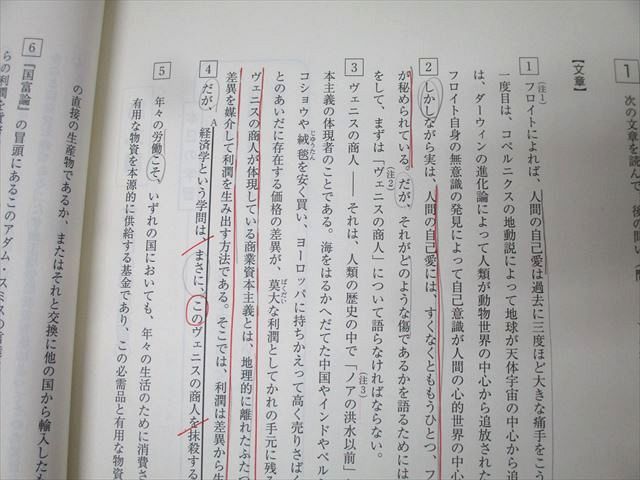 1
次の文章を読んで、後の問い(問
【文章】
1 (注1)フロイトによれば、人間の自己愛は過去に三度ほど大きな痛手をこう
一度目は、コペルニクスの地動説によって地球が天体宇宙の中心から追放された
は、ダーウィンの進化論によって人類が動物世界の中心から追放され
フロイト自身の無意識の発見によって自己意識が人間の心的世界の中
2 しかしながら実は、人間の自己愛には、すくなくとももうひとつ、フ
が秘められている。だが、それがどのような傷であるかを語るためには
をして、まずは「(注2)ヴェニスの商人」について語らなければならない。
3 ヴェニスの商人――それは、人類の歴史の中で「(注3)ノアの洪水以前」
本主義の体現者のことである。海をはるかへだてた中国やインドやペル
コショウや絨毯を安く買い、ヨーロッパに持ちかえって高く売りさばく
じゅうたん
とのあいだに存在する価格の差異が、莫大な利潤としてかれの手元に残る
ばくだい
ヴェニスの商人が体現している商業資本主義とは、地理的に離れたふたつ
差異を媒介して利潤を生み出す方法である。そこでは、利潤は差異から生
4 だが、A経済学という学問は、まさに、このヴェニスの商人を抹殺する
5 年々の労働こそ、いずれの国においても、年々の生活のために消費さ
有用な物資を本源的に供給する基金であり、この必需品と有用な物資
の直接の生産物であるか、またはそれと交換に他の国から輸入したも
6 『国富論』の冒頭にあるこのアダム・スミスの言葉
らの利潤を